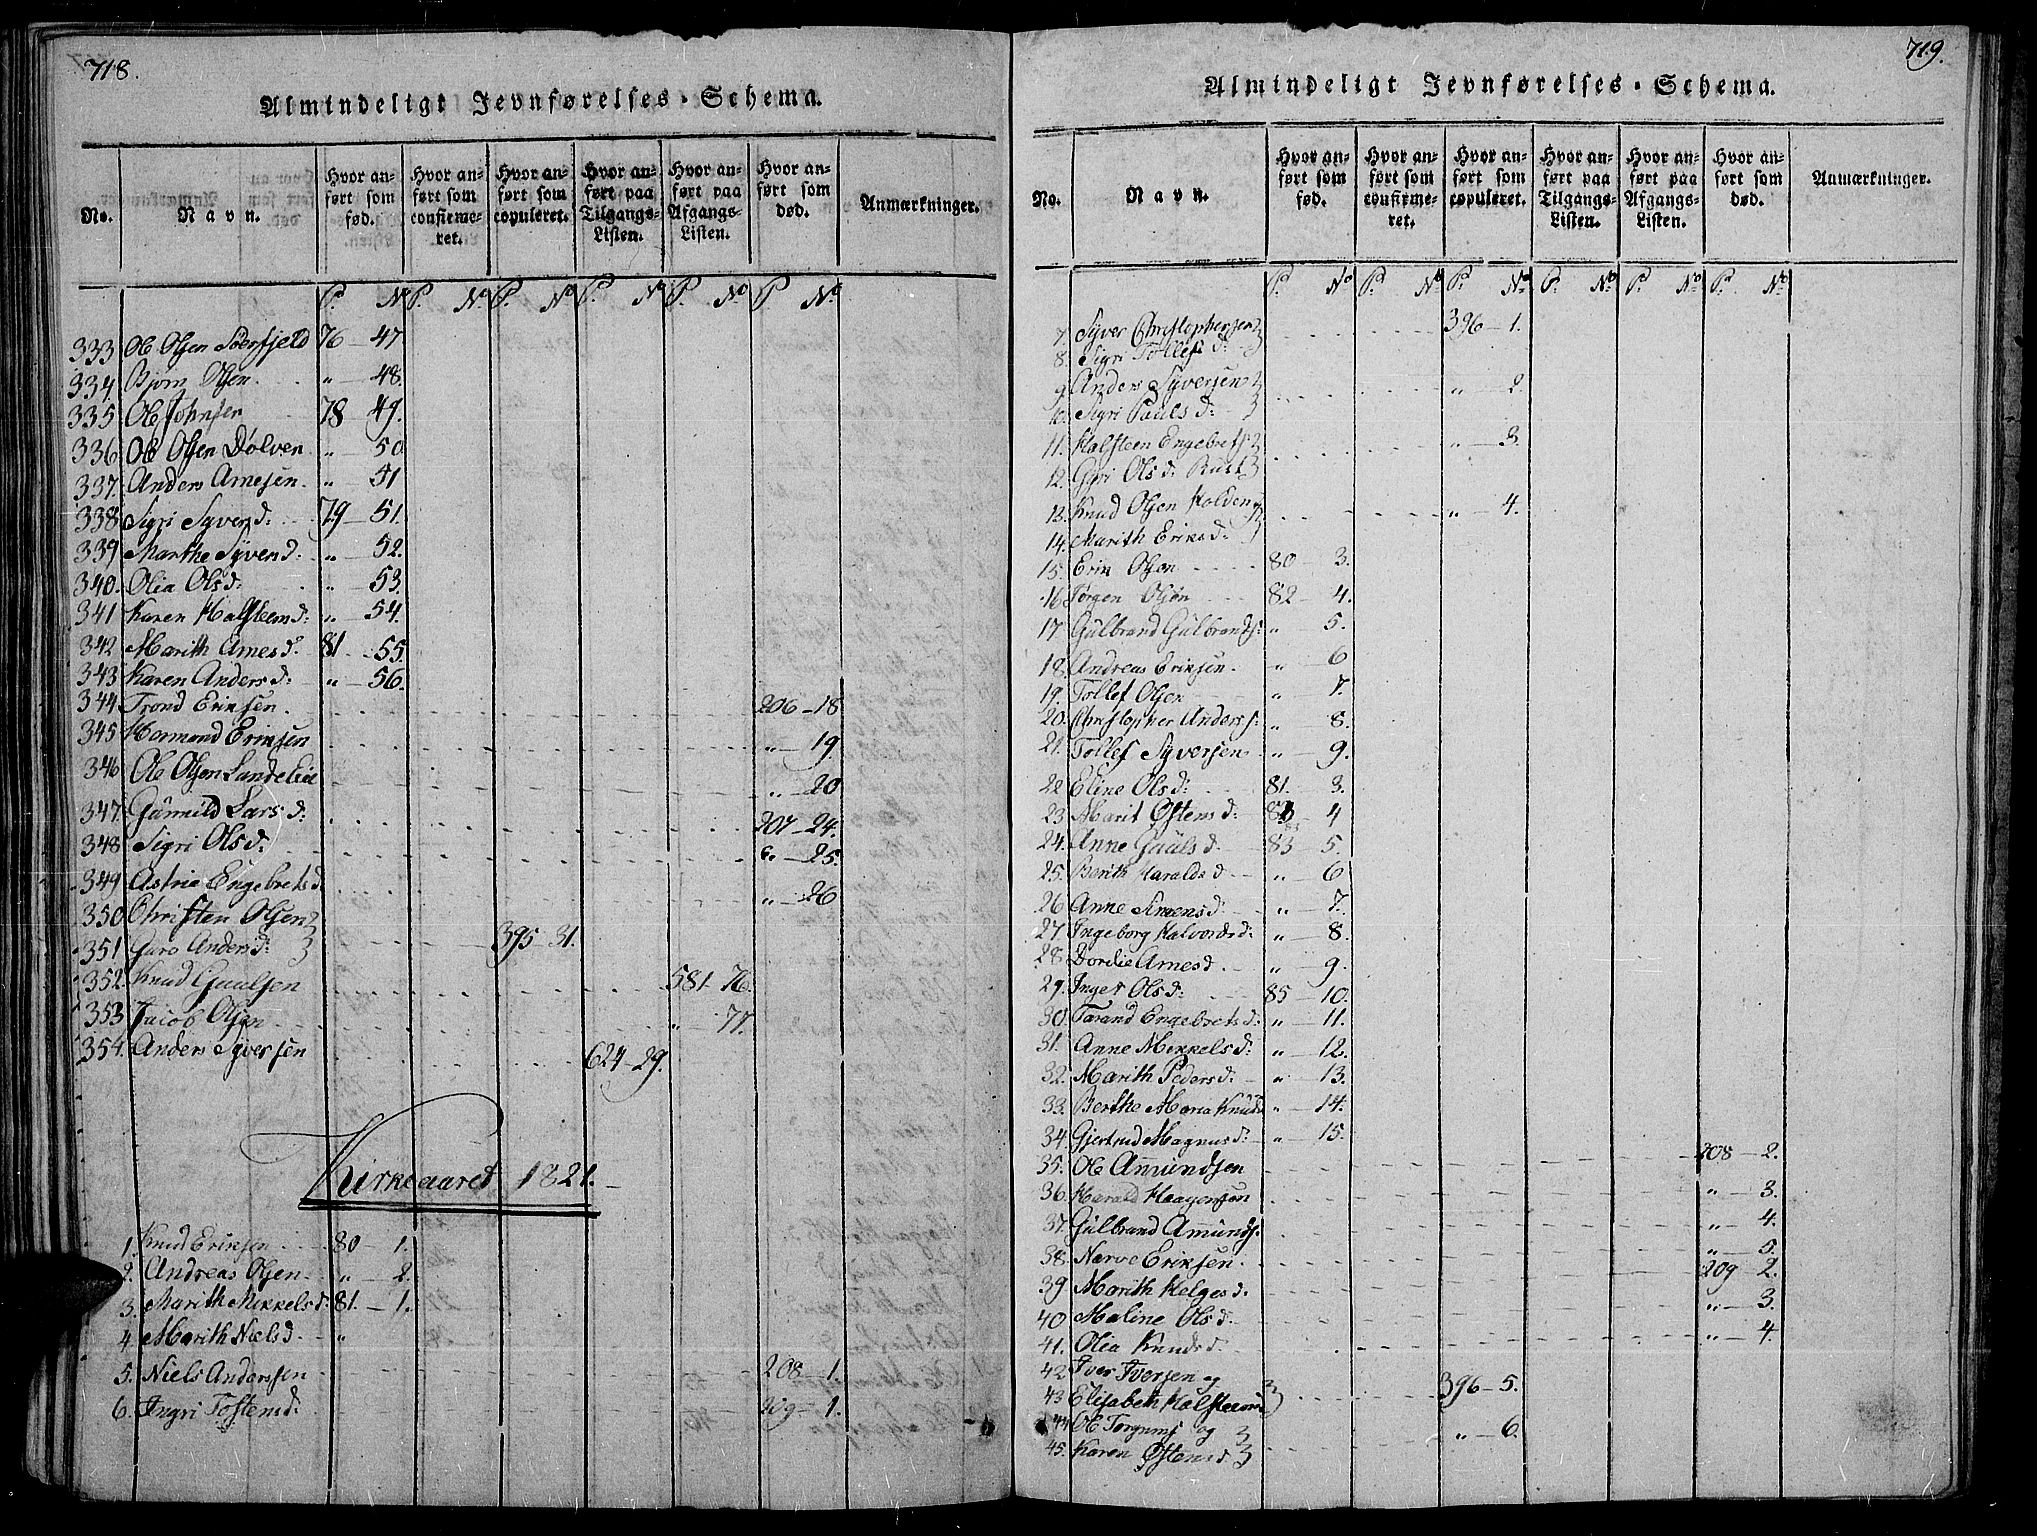 718.
Almindeligt Jevnførelses-Schema.
No. Navn. Hvor anført som fød. Hvor anført som confirmeret. Hvor anført som copuleret. Hvor anført paa Tilgangs-Listen. Hvor anført paa Afgangs-Listen. Hvor anført som død. Anmærkninger.
P. No P. No P. No P. No P. No P. No
333 Ole Olsen Sørfjeld 76 - 47
334 Bjørn Olsen " - 48.
335 Ole Johnsen 78 49.
336 Ole Olsen Dølven " - 50
337. Anders Arnesen " - 51
338 Sigri Syversd. 79 - 51.
339 Marthe Syversd: " - 52.
340. Olia Olsd: " - 53.
341 Karen Halsteensd: " - 54.
342 Marith Arnesd: 81 - 55.
343 Karen Andersd: " - 56.
344 Trond Eriksen. 206 - 18
345 Hermand Eriksen " - 19.
346 Ole Olsen " - 20
347. Gunnild Larsd: 207 - 24.
348 Sigri Olsd. " - 25.
349 Astrie Engebretsd " - 26
350. Christen Olsen
351 Guro Andersd: 395 31.
352. Knud Guulsen 581. 76.
353 Jacob Olsen " - 77.
354. Anders Syversen 624 - 29.
Kirkeaaret 1821.
1. Knud Eriksen 80 - 1.
2. Andreas Olsen " - 2.
3. Marith Mikkelsd: 81. - 1.
4 Marith Nielsd. "
5. Niels Anderssen 208 - 1.
6. Ingri Tostensd: 209 - 1.
719.
Almindeligt Jevnførelses-Schema.
No. Navn. Hvor anført som fød. Hvor anført som confirmeret. Hvor anført som copuleret. Hvor anført paa Tilgangs-Listen. Hvor anført paa Afgangs-Listen. Hvor anført som død. Anmærkninger.
P. No P. No P. No P. No P. No P. No
7. Syver Christophersen 396 - 1.
8. Sigri Tollefsd:
9 Anders Syversen " - 2.
10. Sigri Paulsd:
11. Halsteen Engebrets: " - 3.
12. Gyri Olsd: Rust
13. Knud Olsen Holden " - 4.
14. Marith Eriksd:
15. Erik Olsen 80 - 3.
16 Jørgen Olsøn 82 - 4.
17. Gulbrand Gulbrands: " - 5.
18. Andreas Eriksen. " - 6
19. Tollef Olsen " - 7.
20. Christopher Anders: " - 8.
21. Tollef Syversen " - 9.
22 Eline Olsd: 81. - 3.
23. Marit Østensd: - 4
24. Anne Guulsd. 83 - 5.
25. Berith Haraldsd " - 6
26 Anne Simensd. " - 7.
27. Ingeborg Halvorsd: " - 8.
28. Dordie Arnesd. " - 9.
29. Inger Olsd: 85 - 10.
30. Tarand Engebretsd: " - 11.
31. Anne Mikkelsd: " - 12.
32. Marith Pedersd. " - 13.
33. Berthe Maria Knuds " - 14.
34. Gjertrud Magnusd: " - 15.
35. Ole Amundsen 208 - 2.
36. Harald Haagensen " - 3.
37. Gulbrand Amunds. " - 4.
38. Narve Eriksen. " - 5.
39 Marith Helgesd. 209 - 2.
40 Maline Olsd. " - 3.
41. Olea Knudsd. " - 4
42 Iver Iversen og
43 Elisabeth Halsteensd 396 - 5.
44 Ole Torgrims: og " - 6.
45. Karen Østensd